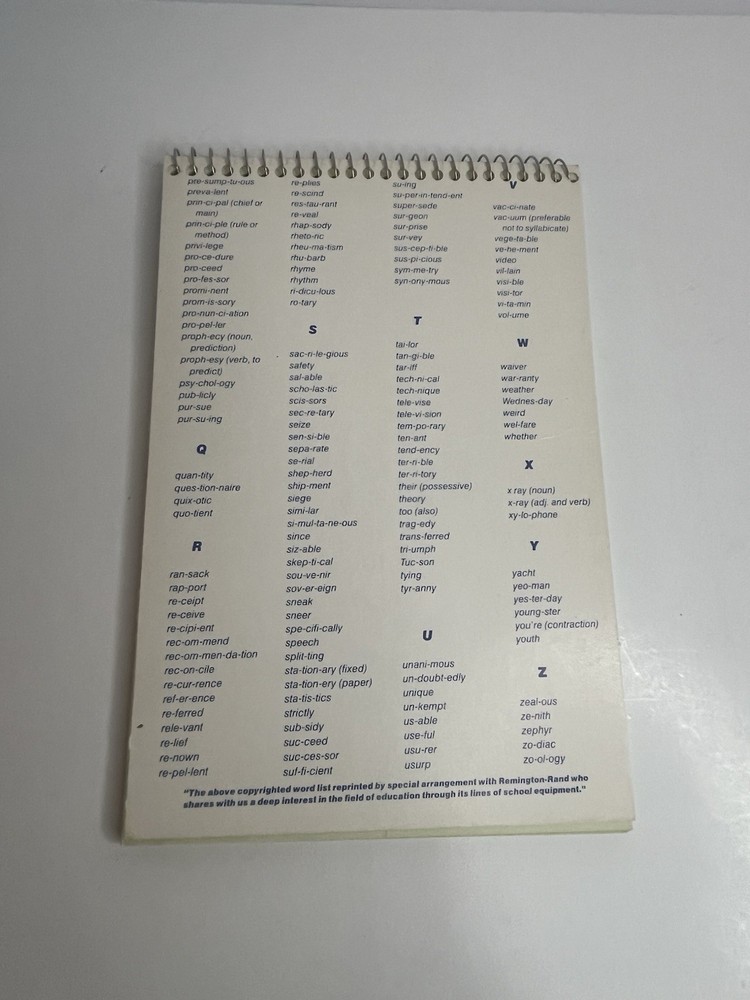 pre-sump-tu-ous
preva-lent
prin-ci-pal (chief or
main)
prin-ci-ple (rule or
method)
privi-lege
pro-ce-dure
pro-ceed
pro-fes-sor
promi-nent
prom-is-sory
pro-nun-ci-ation
pro-pel-ler
proph-ecy (noun,
prediction)
proph-esy (verb, to
predict)
psy-chol-ogy
pub-licly
pur-sue
pur-su-ing
Q
quan-tity
ques-tion-naire
quix-otic
quo-tient
R
ran-sack
rap-port
re-ceipt
re-ceive
re-cipi-ent
rec-om-mend
rec-om-men-da-tion
rec-on-cile
re-cur-rence
ref-er-ence
re-ferred
rele-vant
re-lief
re-nown
re-pel-lent
re-plies
re-scind
res-tau-rant
re-veal
rhap-sody
rheto-ric
rheu-ma-tism
rhu-barb
rhyme
rhythm
ri-dicu-lous
ro-tary
S
sac-ri-le-gious
safety
sal-able
scho-las-tic
scis-sors
sec-re-tary
seize
sen-si-ble
sepa-rate
se-rial
shep-herd
ship-ment
siege
simi-lar
si-mul-ta-ne-ous
since
siz-able
skep-ti-cal
sou-ve-nir
sov-er-eign
sneak
sneer
spe-cifi-cally
speech
split-ting
sta-tion-ary (fixed)
sta-tion-ery (paper)
sta-tis-tics
strictly
sub-sidy
suc-ceed
suc-ces-sor
suf-fi-cient
su-ing
su-per-in-tend-ent
super-sede
sur-geon
sur-prise
sur-vey
sus-cep-ti-ble
sus-pi-cious
sym-me-try
syn-ony-mous
T
tai-lor
tan-gi-ble
tar-iff
tech-ni-cal
tech-nique
tele-vise
tele-vi-sion
tem-po-rary
ten-ant
tend-ency
ter-ri-ble
ter-ri-tory
their (possessive)
theory
too (also)
trag-edy
trans-ferred
tri-umph
Tuc-son
tying
tyr-anny
U
unani-mous
un-doubt-edly
unique
un-kempt
us-able
use-ful
usu-rer
usurp
V
vac-ci-nate
vac-uum (preferable
not to syllabicate)
vege-ta-ble
ve-he-ment
video
vil-lain
visi-ble
visi-tor
vi-ta-min
vol-ume
W
waiver
war-ranty
weather
Wednes-day
weird
wel-fare
whether
X
x ray (noun)
x-ray (adj. and verb)
xy-lo-phone
Y
yacht
yeo-man
yes-ter-day
young-ster
you're (contraction)
youth
Z
zeal-ous
ze-nith
zephyr
zo-diac
zo-ol-ogy
"The above copyrighted word list reprinted by special arrangement with Remington-Rand who
shares with us a deep interest in the field of education through its lines of school equipment."